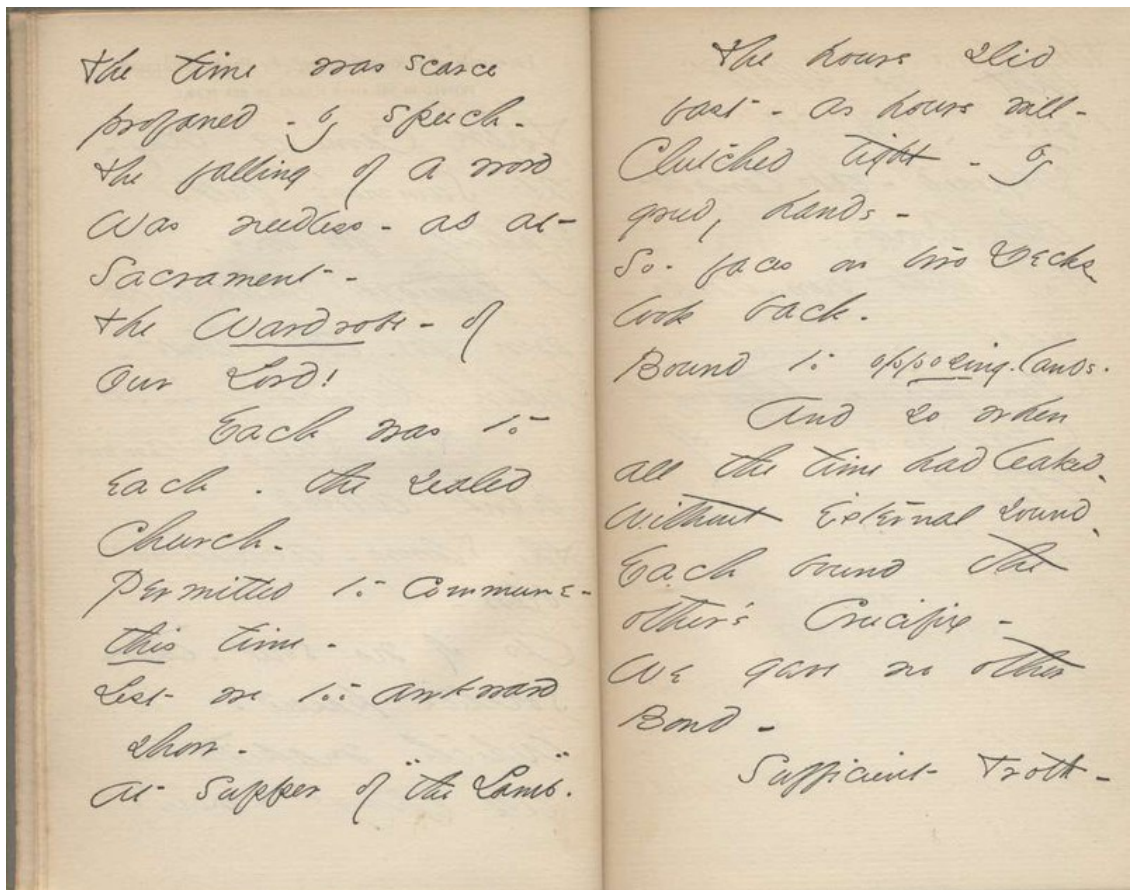 The time was scarce
profaned - by speech -
The falling of a word
Was needless - as at -
Sacrament -
The Wardrobe - of
Our Lord!
Each was to
each - the sealed
Church -
Permitted to commune -
this time -
Lest we too awkward
show -
At Supper of "the Lamb."
The hours slid
fast - as hours will -
Clutched tight - by
greedy hands -
So - faces on two Decks
look back -
Bound to opposing lands.
And so when
all the time had leaked,
Without external sound,
Each bound the
other's Crucifix -
We gave no other
Bond -
Sufficient - Troth -